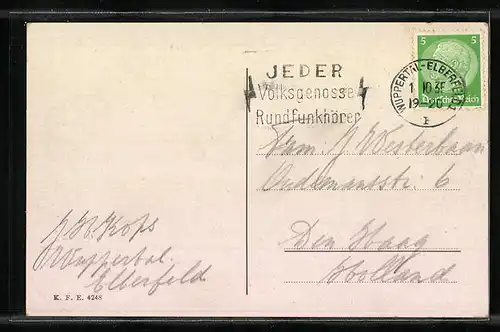 JEDER
Volksgenosse
Rundfunkhörer
WUPPERTAL-ELBERFELD
1.10.35
19-20
5 5
Deutsches Reich
Fam. J. Westerbaan
6
Den Haag
Holland
Kops
Wuppertal.
Elberfeld
K. F. E. 4248